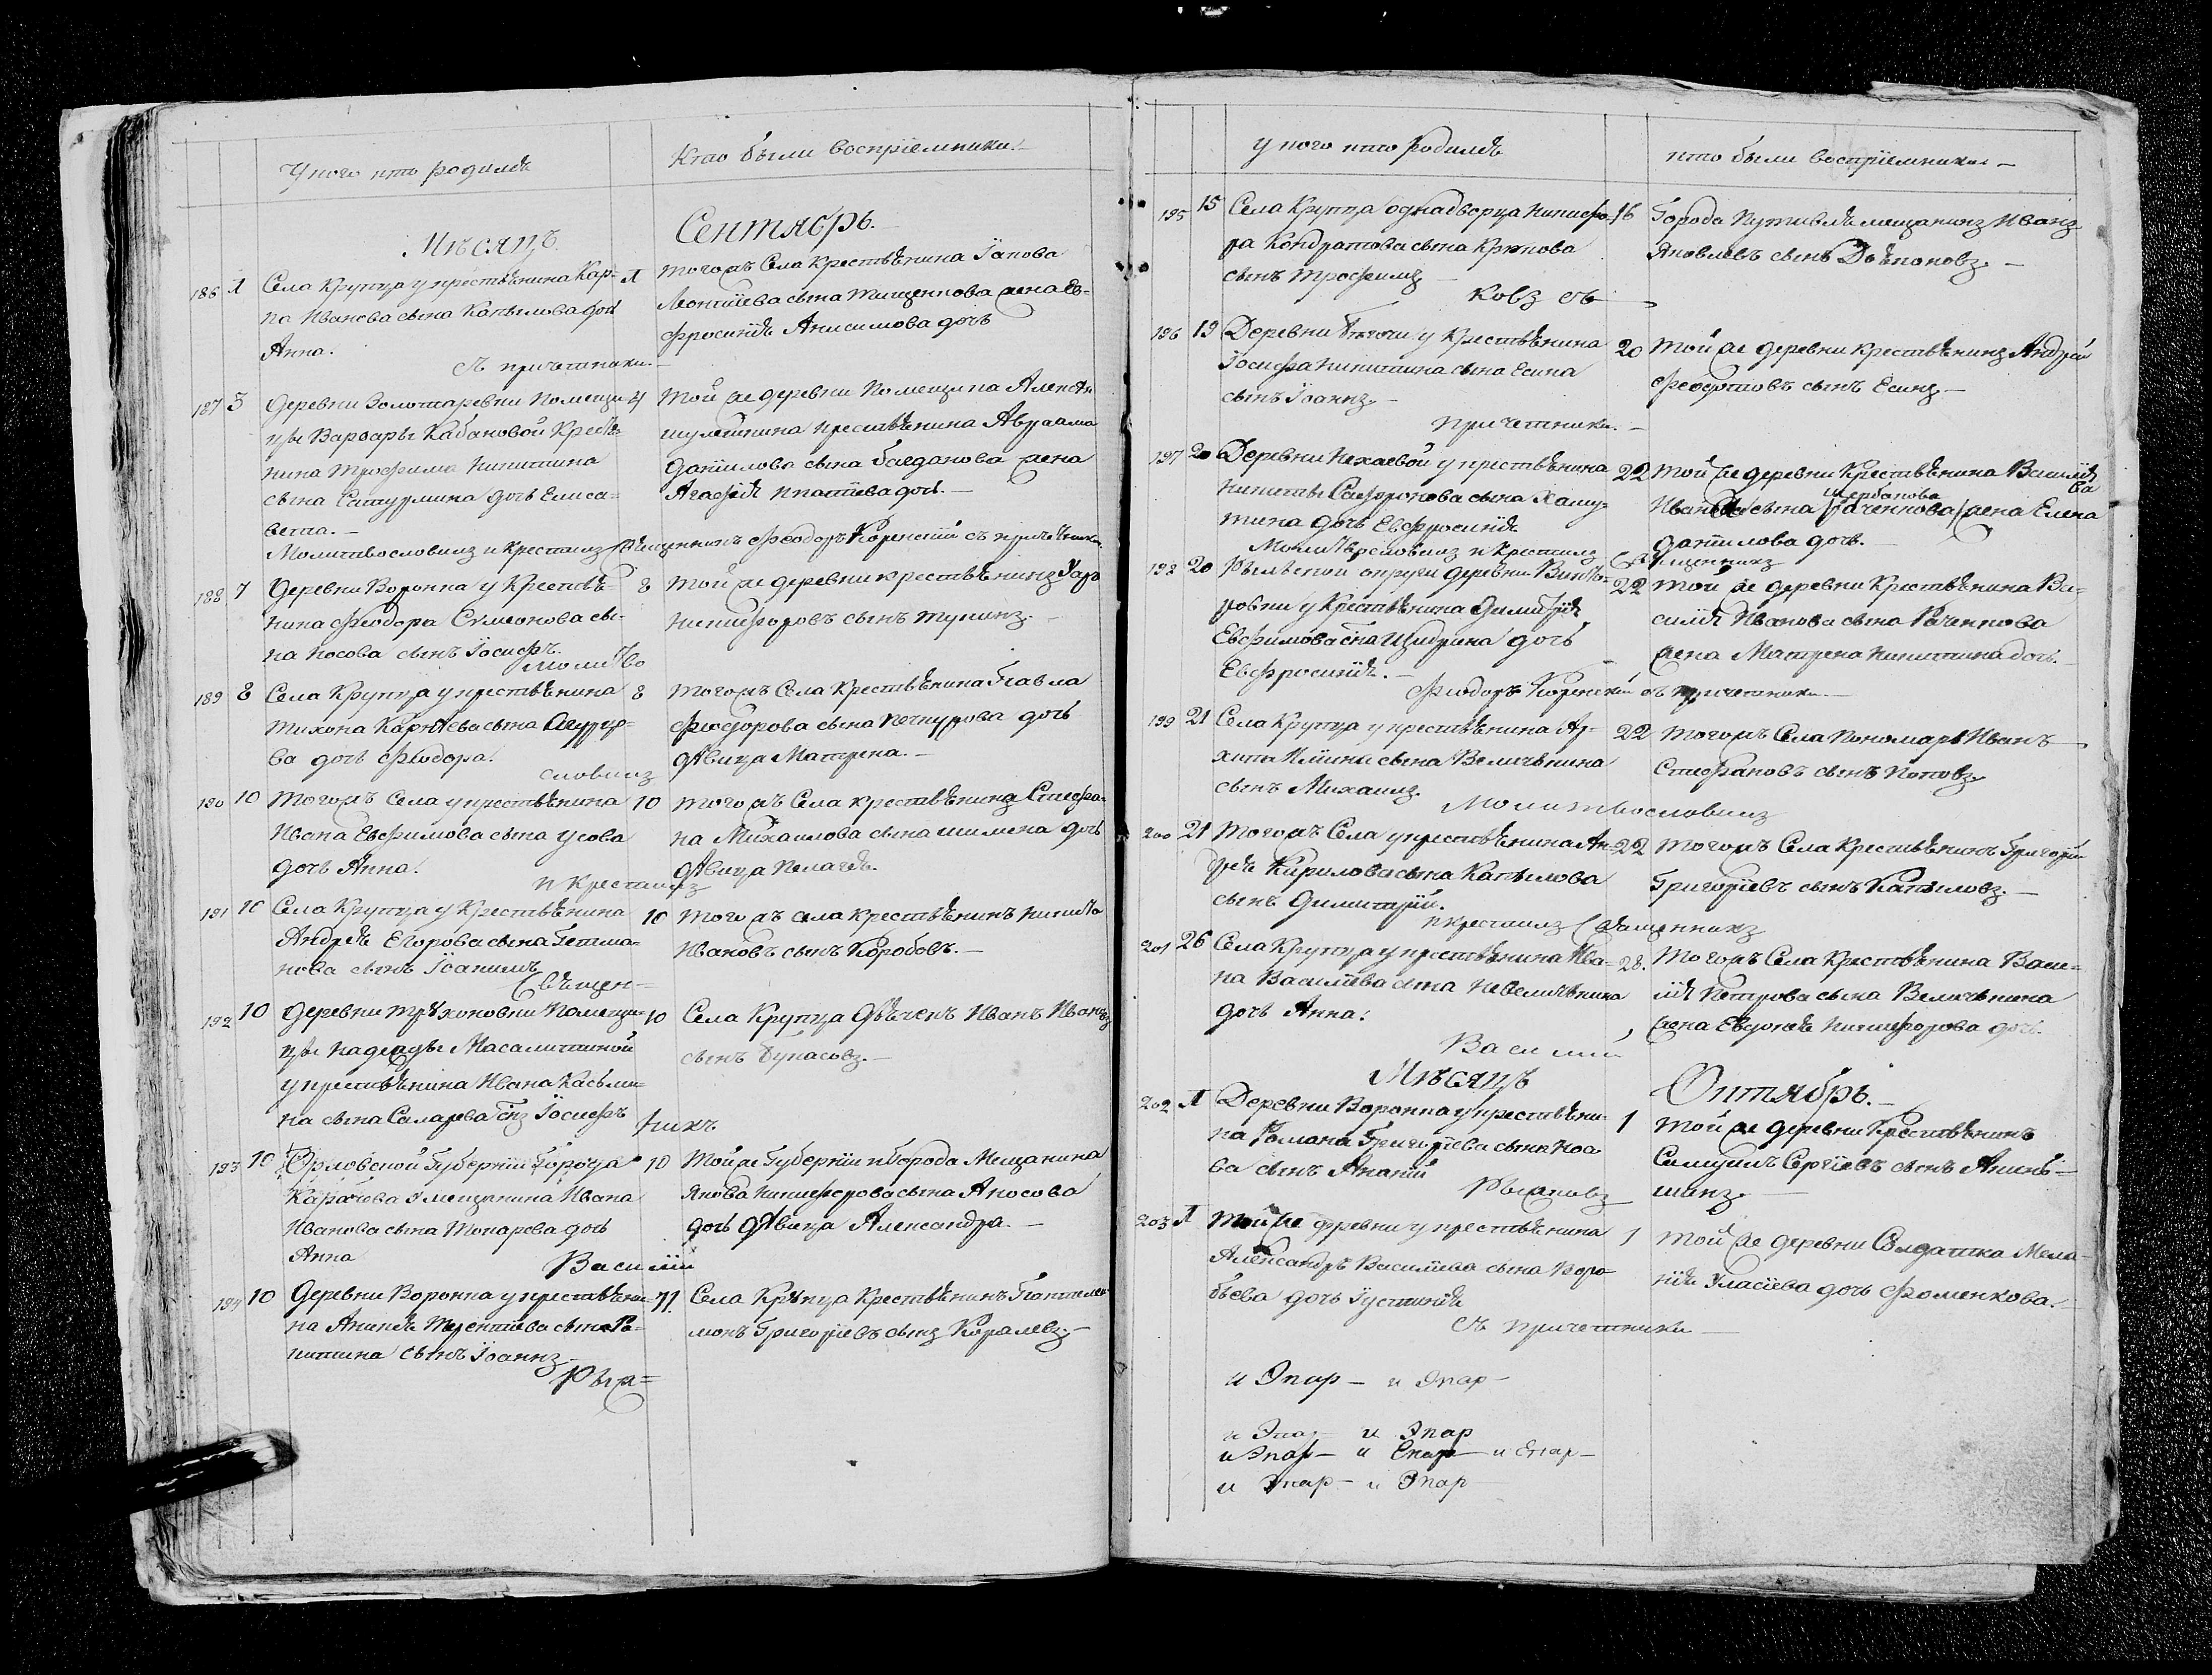 У кого кто родился
Кто были восприемники.
Мѣсяцъ
Сентябрь.
186 1 Села Крупца у крестьянина Кар=
па Иванова сына Капылова дочь
Анна.
1 тогожъ Села Крестьянина Іакова
Леонтіева сына Тищенкова жена Ев=
фросинія Анисимова дочь
съ причетники.
187 3 Деревни Золотаревки Помещи=
цы Варвары Кабановой Крестья=
нина Трофима Никитина
сына дочь Елиса=
вета.
4 той же деревни Помещика
крестьянина Авраама
Данилова сына Богданова жена
Агафія дочь.
Молитвословилъ и крестилъ Священникъ Феодоръ Коренскій съ причетники.
188 7 Деревни Воронка у Крестья=
нина Феодора Сумеонова сы=
на Носова сынъ Іосифъ.
8 той же деревни крестьянинъ
Никифоровъ сынъ
Молитво
189 8 Села Крупца у крестьянина
Тихона Карпѣева сына
ва дочь Феодора.
8 тогожъ Села Крестьянина Павла
Феодорова сына дочь
дѣвица Матрена.
словилъ
190 10 Тогожъ Села у крестьянина
Ивана Евфимова сына Усова
дочь Анна.
10 тогожъ Села крестьянина Стефа=
на Михаилова сына дочь
дѣвица Пелагея.
и крестилъ
191 10 Села Крупца у Крестьянина
Андрея Егорова сына Гетма=
нова сынъ Іоакимъ
10 тогожъ села крестьянинъ Никита
Ивановъ сынъ Коробовъ.
Священ=
192 10 Деревни Помещи=
цы Надежды Масалитиной
у крестьянина Ивана Касьми=
на сына Саларева сынъ Іосифъ
10 Села Крупца Дьяченъ Иванъ Ивановъ
сынъ Букасовъ.
никъ
193 10 Орловской Губерніи Города
Карачова у мещанина Ивана
Иванова сына Токарева дочь
Анна
10 Той же Губерніи и Города Мещанина
Якова Никифорова сына Аносова
дочь дѣвица Александра.
Василій
194 10 Деревни Воронка у крестьяни=
на Терентіева сына
сынъ Іоаннъ
11 Села Крупца Крестьянинъ Пантелеи=
монъ Григоріевъ сынъ Королевъ.
Рыж=
у кого кто родился
кто были восприемники
195 15 Села Крупца однодворца Никифо=
ра Кондратова сына Крюкова
сынъ Трофимъ
16 Города Путивля мещанинъ Иванъ
Яковлевъ сынъ
ковъ съ
196 19 Деревни у Крестьянина
Іосифа Никитина сына Есина
сынъ Іоаннъ
20 той же деревни крестьянинъ Андрей
Феодотовъ сынъ Есинъ
причетники.
197 20 Деревни Нехаевой у крестьянина
Никиты Сафронова сына Хаму=
тина дочь Евфросинія
22 той же деревни Крестьянина Василія
Иванова сына Щербакова жена Елена
Данилова дочь.
Молитвословилъ и крестилъ Священникъ
198 20 Рыльской округи деревни
у Крестьянина Димитрія
Евфимова сына Щедрина дочь
Евфросинія.
22 той же деревни Крестьянина Ва=
силія Иванова сына Раченкова
жена Матрена Никитина дочь.
Феодоръ Коренскій съ причетники
199 21 Села Крупца у крестьянина Ар=
хипа Ильина сына Величкина
сынъ Михаилъ
22 тогожъ Села Пономарь Иванъ
Стефановъ сынъ Поповъ.
Молитвословилъ
200 21 тогожъ Села у крестьянина Ан=
дрея Кирилова сына Капылова
сынъ Димитрій.
22 тогожъ Села Крестьянинъ Григорій
Григоріевъ сынъ Капыловъ.
и крестилъ Священникъ
201 26 Села Крупца у крестьянина Ива=
на Василіева сына Невеличкина
дочь Анна.
28. Тогожъ Села Крестьянина Васи=
лія Петрова сына Величкина
жена Евдокія Никифорова дочь.
Василій
Мѣсяцъ
Октябрь.
202 1 Деревни Воронка у крестьяни=
на Романа Григоріева сына
ва сынъ Ананій
1 Той же деревни Крестьянинъ
Самуилъ Сергіевъ сынъ
шинъ.
Рыжковъ
203 1 Той же деревни у крестьянина
Александра Василіева сына Воро
бьева дочь Іустинія
1 той же деревни Солдатка Мела=
нія Уласіева дочь Фоменкова.
съ причетники
и Эпар — и Эпар —
и Эпар — и Эпар
и Эпар — и Епар — и Епар —
и Эпар — и Эпар